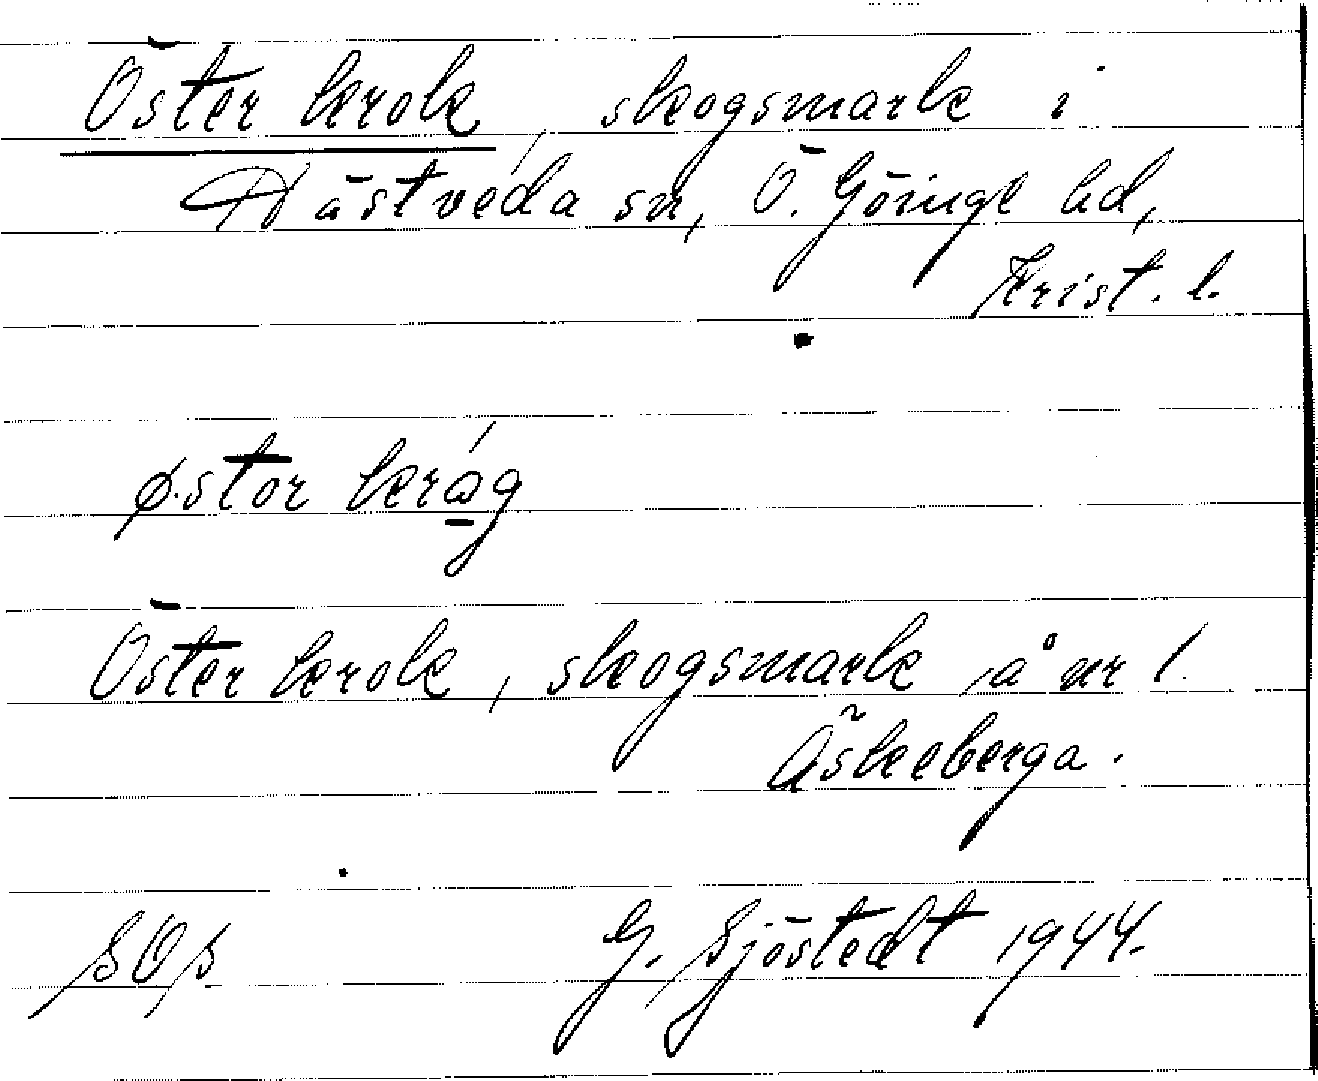 Öster krok, skogsmark i
Hästveda sn, Ö. Göinge hd,
Krist. l.
østor kråg
Öster krok, skogsmark å nr 1
Äskeberga.
SOS G. Sjöstedt 1944.